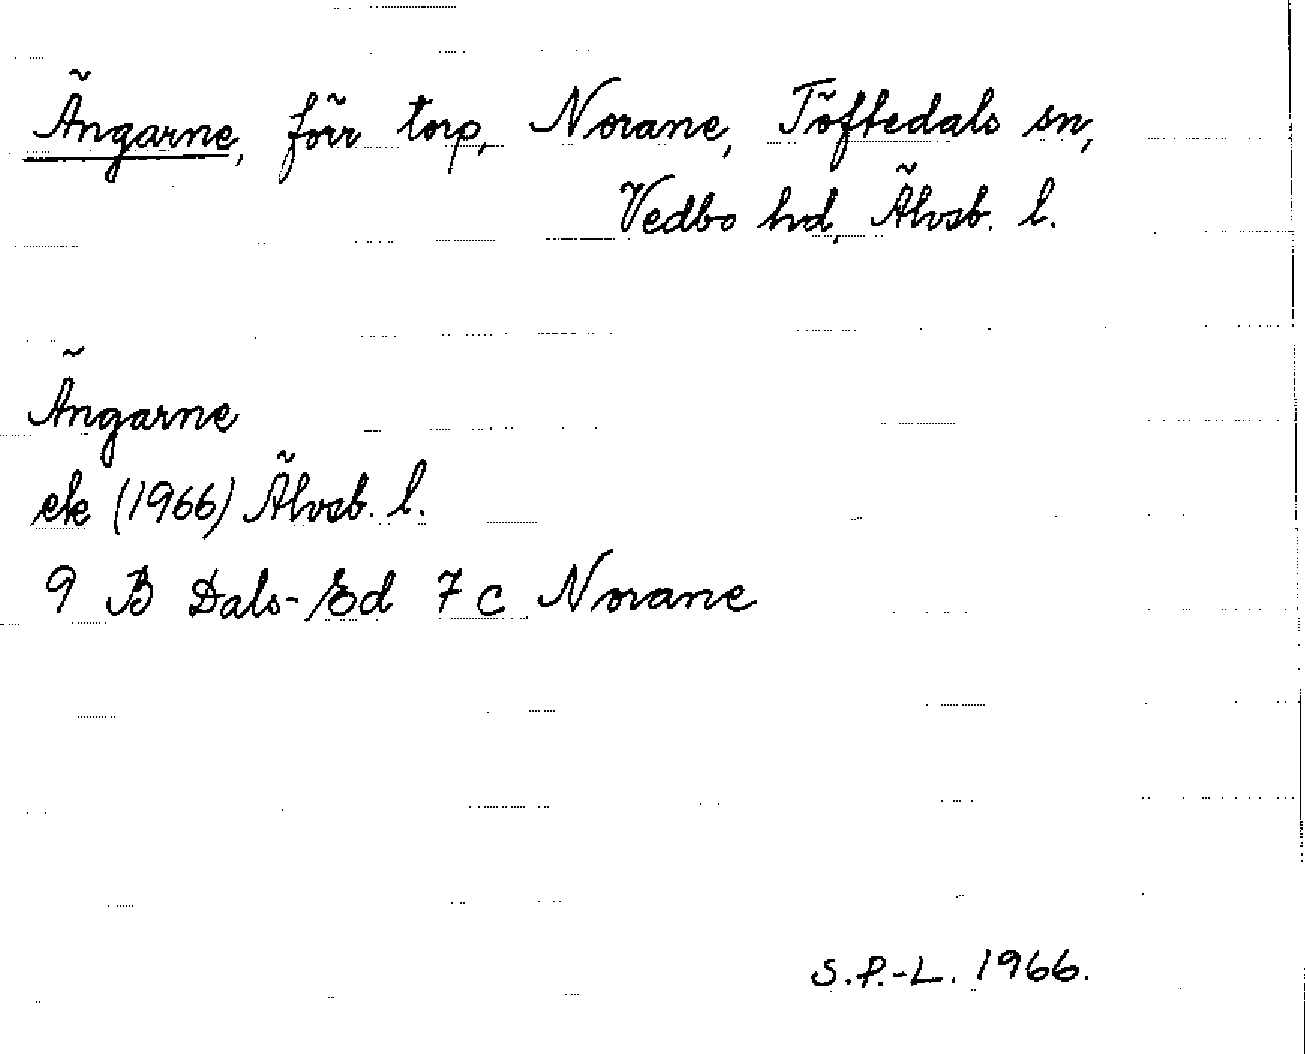 Ängarne, förr torp, Norane, Töftedals sn,
Vedbo hd, Älvsb. l.
Ängarne
ek (1966) Älvsb. l.
9 B Dals-Ed 7 c Norane
S.P.-L. 1966.